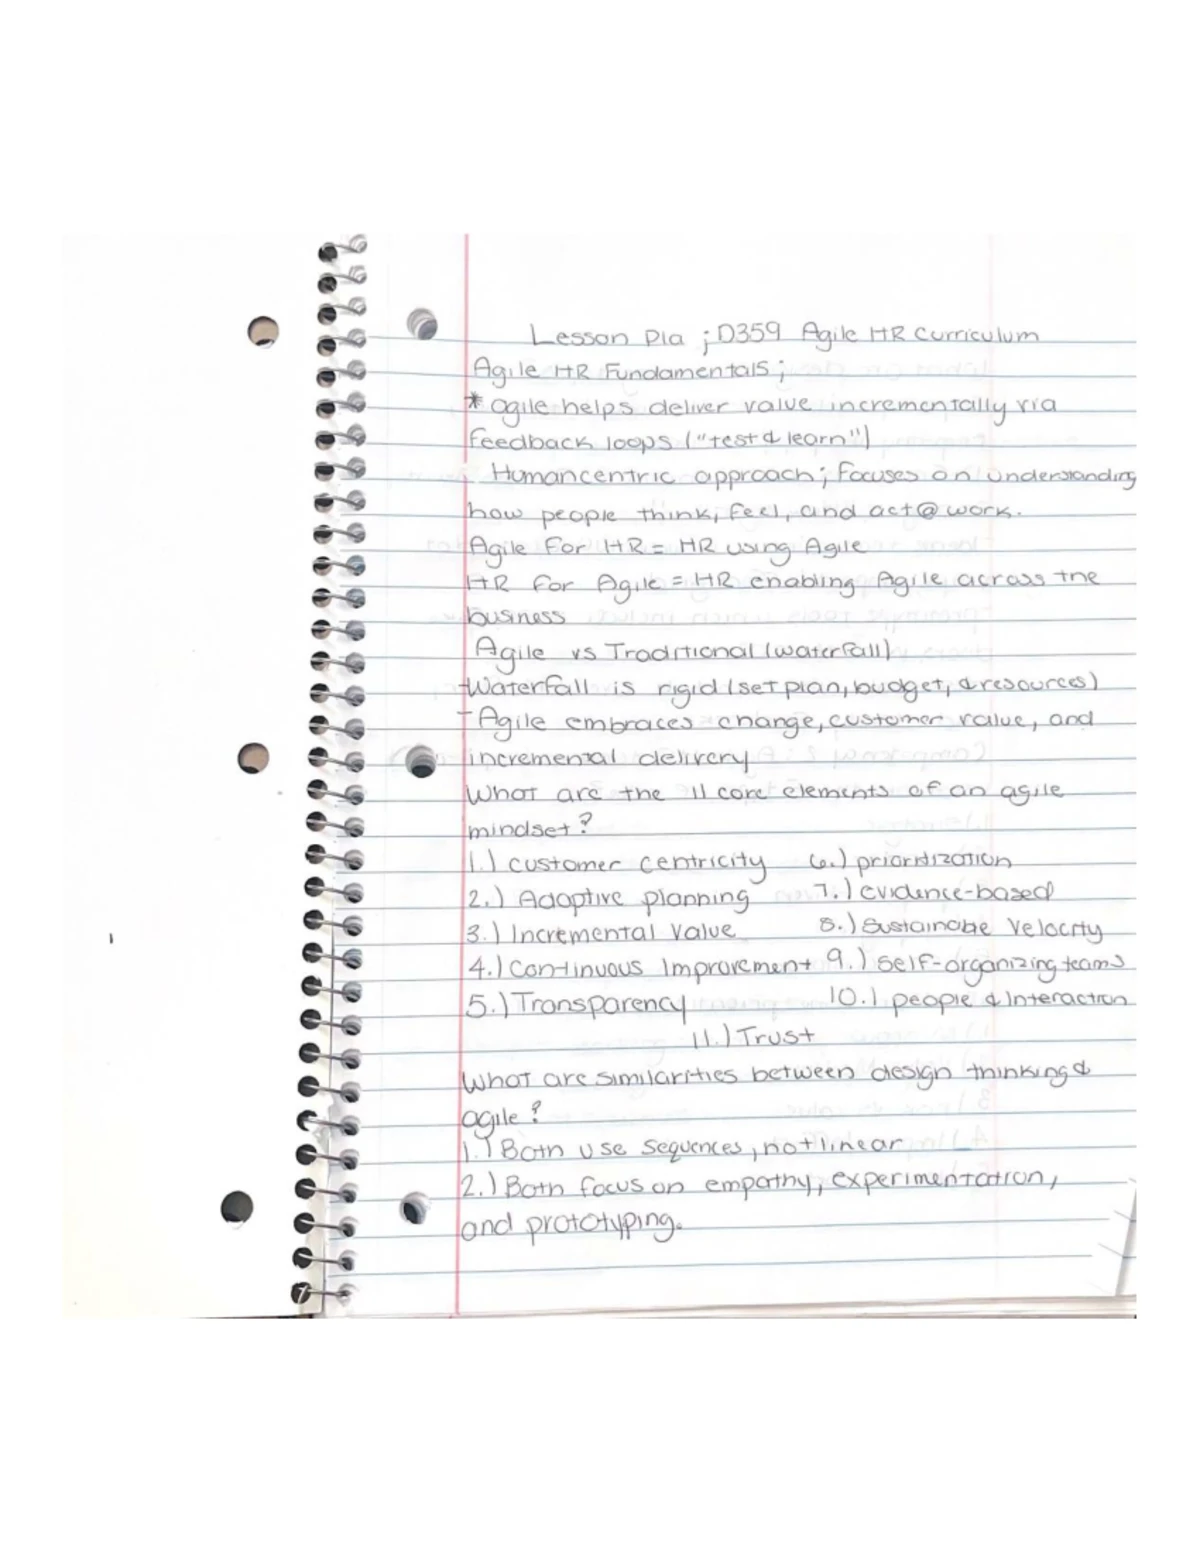 Lesson Pla ; D359 Agile HR Curriculum
Agile HR Fundamentals ;
* agile helps deliver value incrementally via
feedback loops ("test & learn")
Humancentric approach ; focuses on understanding
how people think, feel, and act @ work.
Agile for HR = HR using Agile
HR for Agile = HR enabling Agile across the
business
Agile vs Traditional (waterfall)
- Waterfall is rigid (set plan, budget, & resources)
- Agile embraces change, customer value, and
incremental delivery
What are the 11 core elements of an agile
mindset?
1.) customer centricity 6.) prioritization
2.) Adaptive planning 7.) evidence-based
3.) Incremental Value 8.) Sustainable Velocity
4.) Continuous Improvement 9.) Self-organizing teams
5.) Transparency 10.) people & Interaction
11.) Trust
What are similarities between design thinking &
agile?
1.) Both use sequences, not linear
2.) Both focus on empathy, experimentation,
and prototyping.